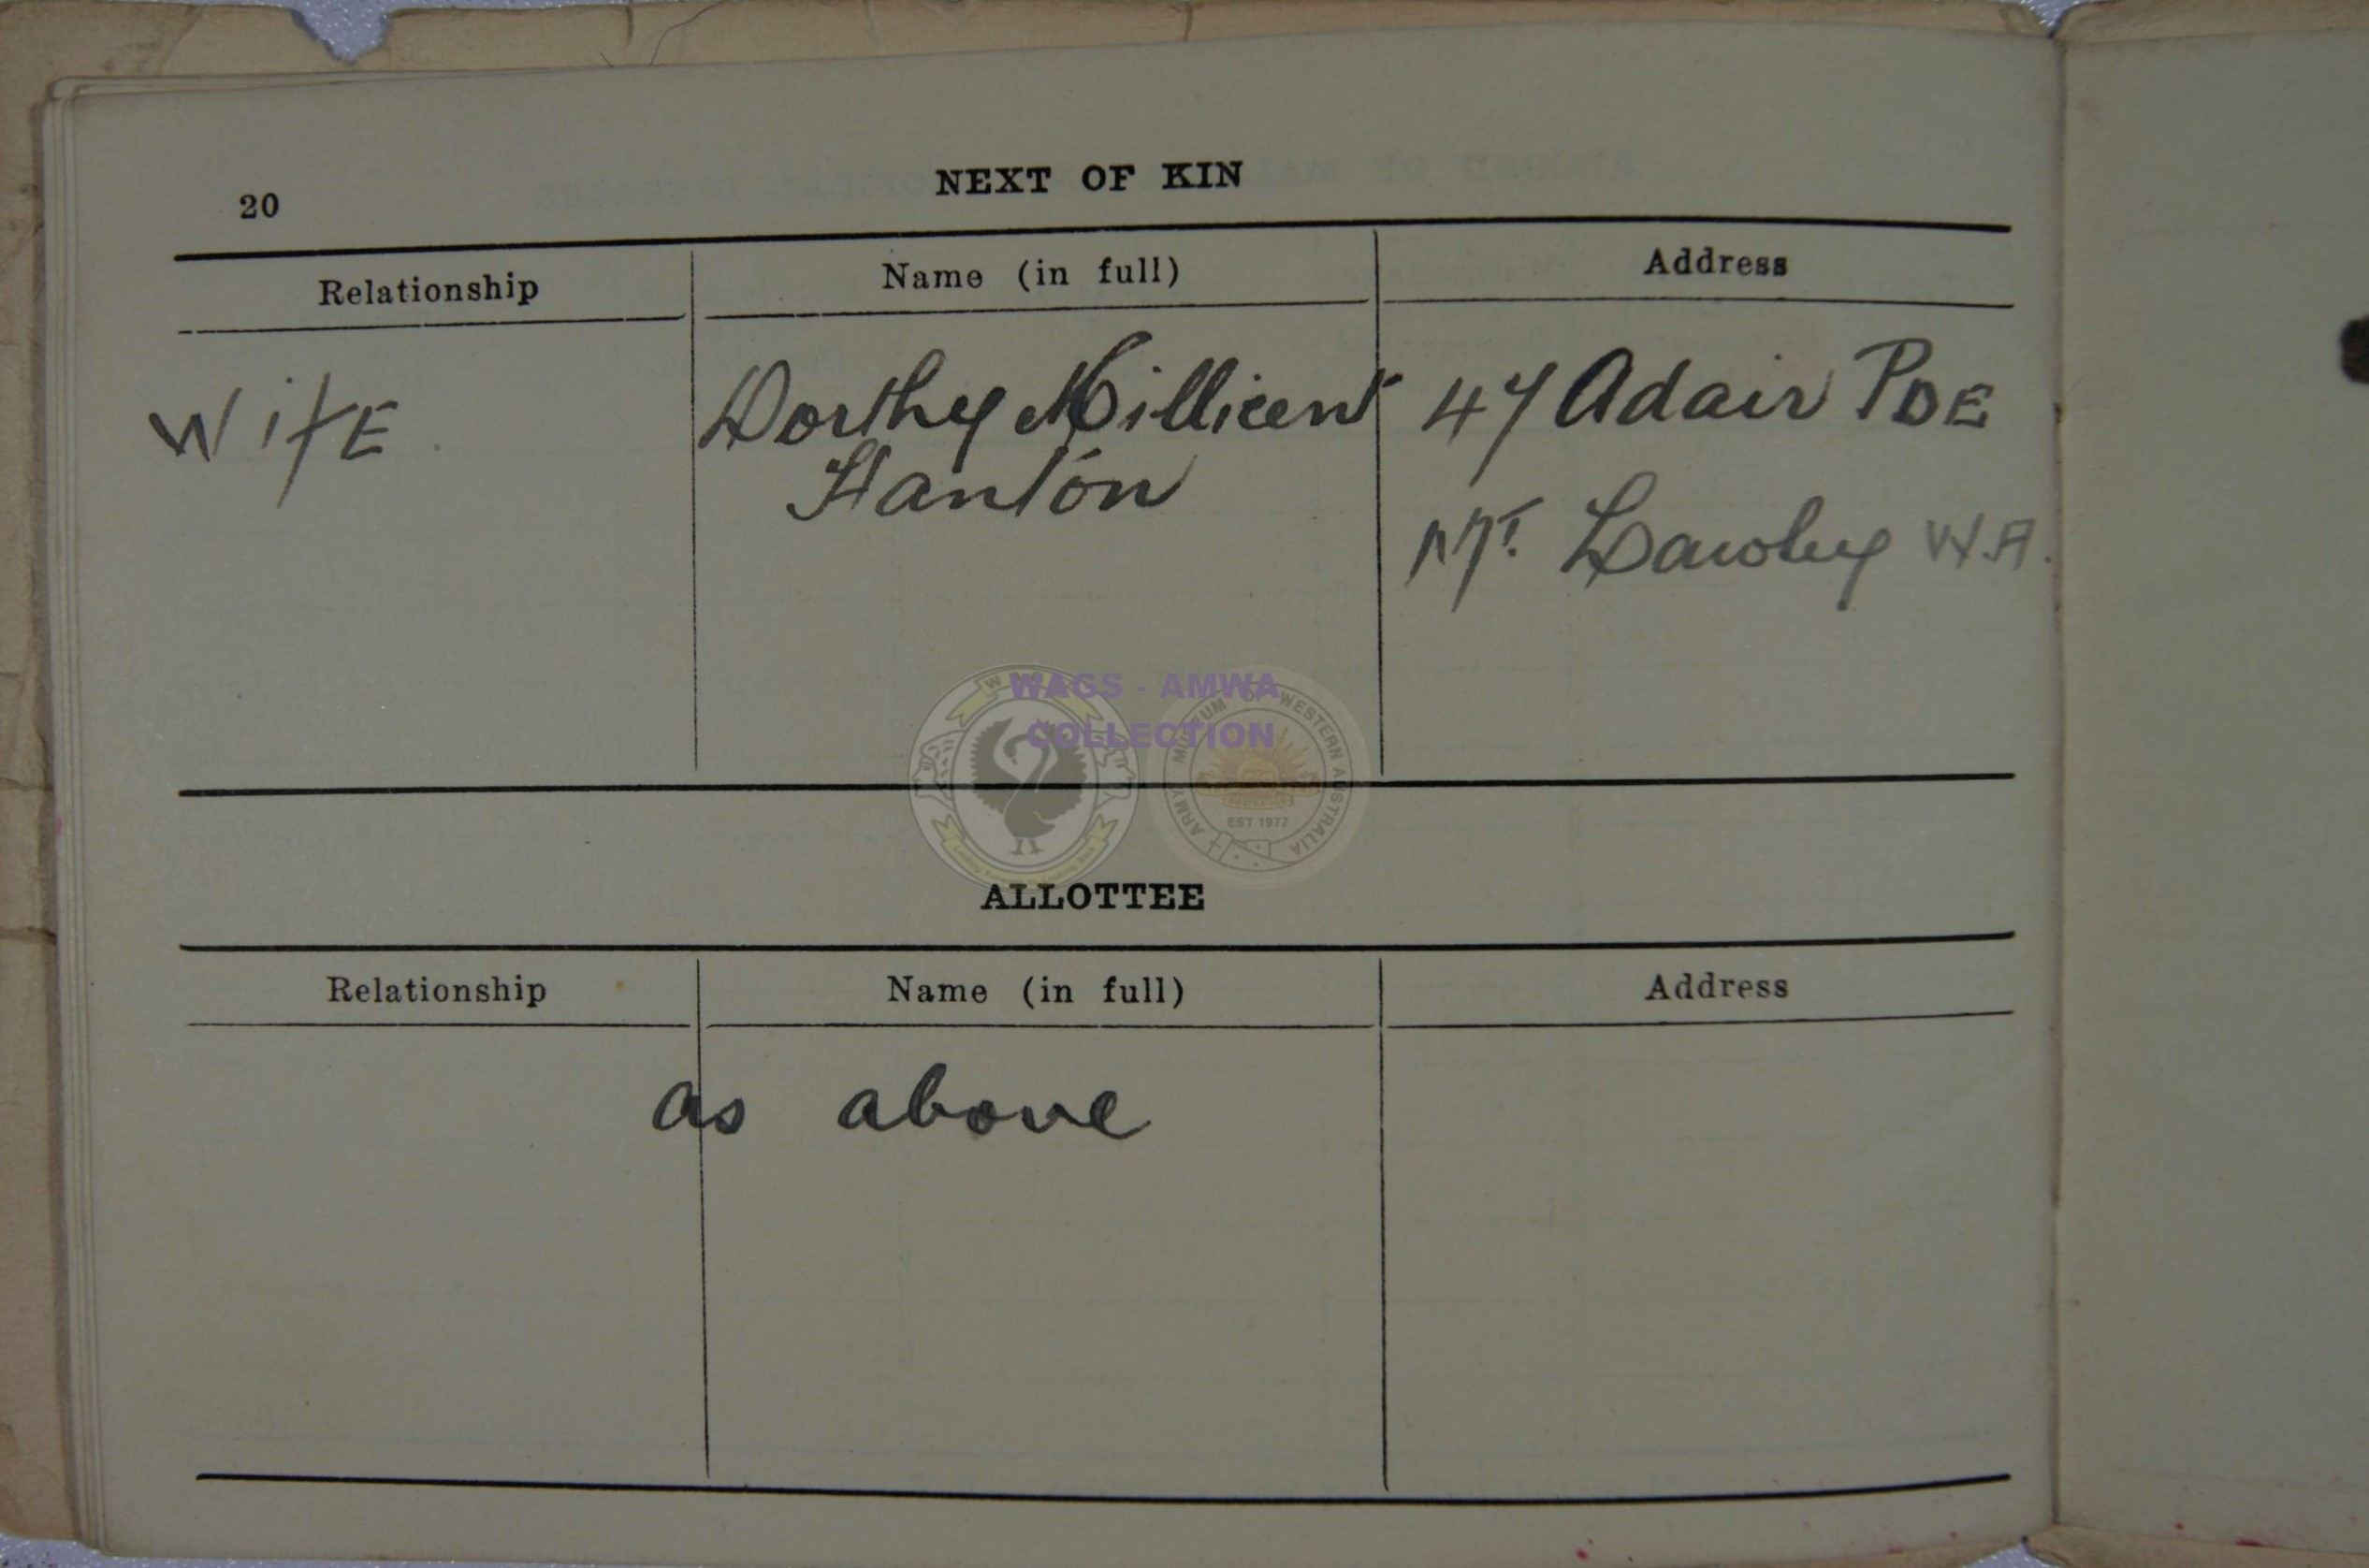 20
NEXT OF KIN
Relationship Name (in full) Address
WifE Dorthy Millicent 47 Adair PDE
Hanton
MT. Lawley W.A.
WAGS - AMWA
COLLECTION
ARMY MUSEUM OF WESTERN AUSTRALIA
EST 1977
ALLOTTEE
Relationship Name (in full) Address
as above